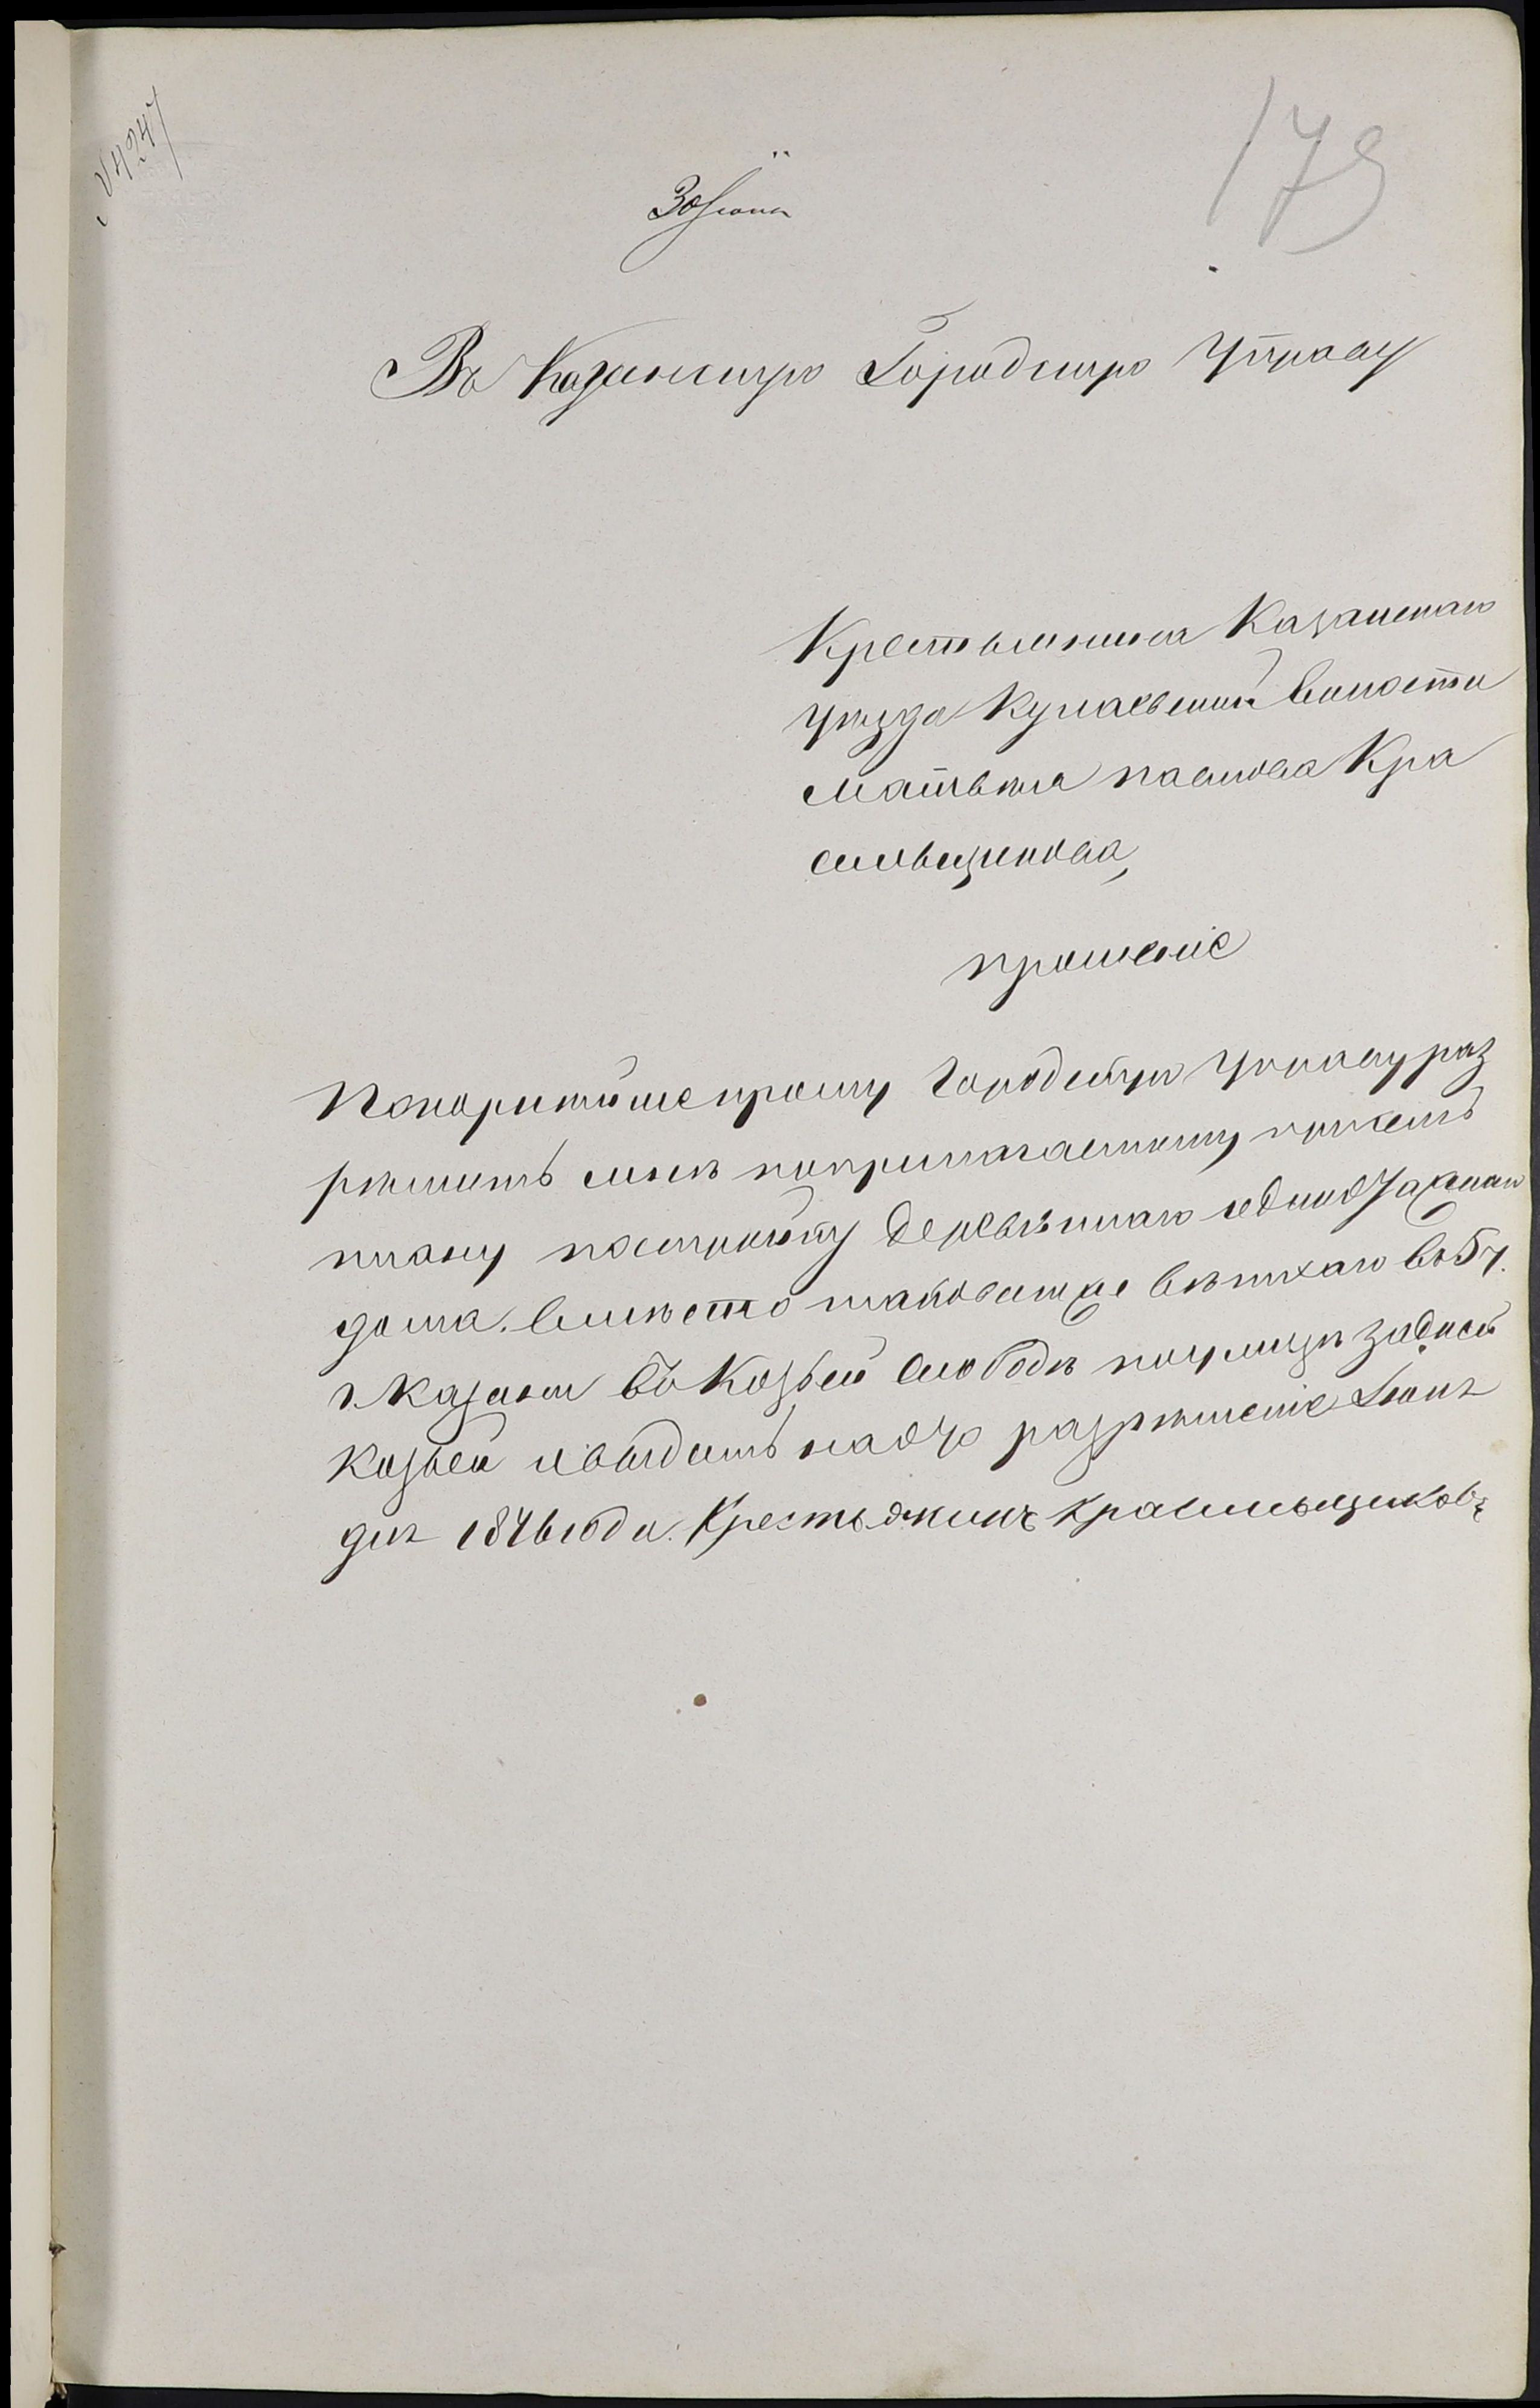 № 4247
179
30 Іюня
Въ Казанскую Городскую Управу
Крестьянина Казанскаго
уѣзда Кулаевской волости
Матвѣя павлова Кра
сильщикова,
прошеніе
Покорнѣйше прошу Городскую Управу раз
рѣшить мнѣ поприлагаемому присемъ
плану постройку деревяннаго одноэтажнаго
дома. вмѣсто таковаго же ветхаго въ 5 ч.
г. Казани въ Козьей слободѣ поулицѣ задней
Козьей и выдать на это разрѣшеніе Іюня
дня 1876 года. Крестьянинъ Красильщиковъ